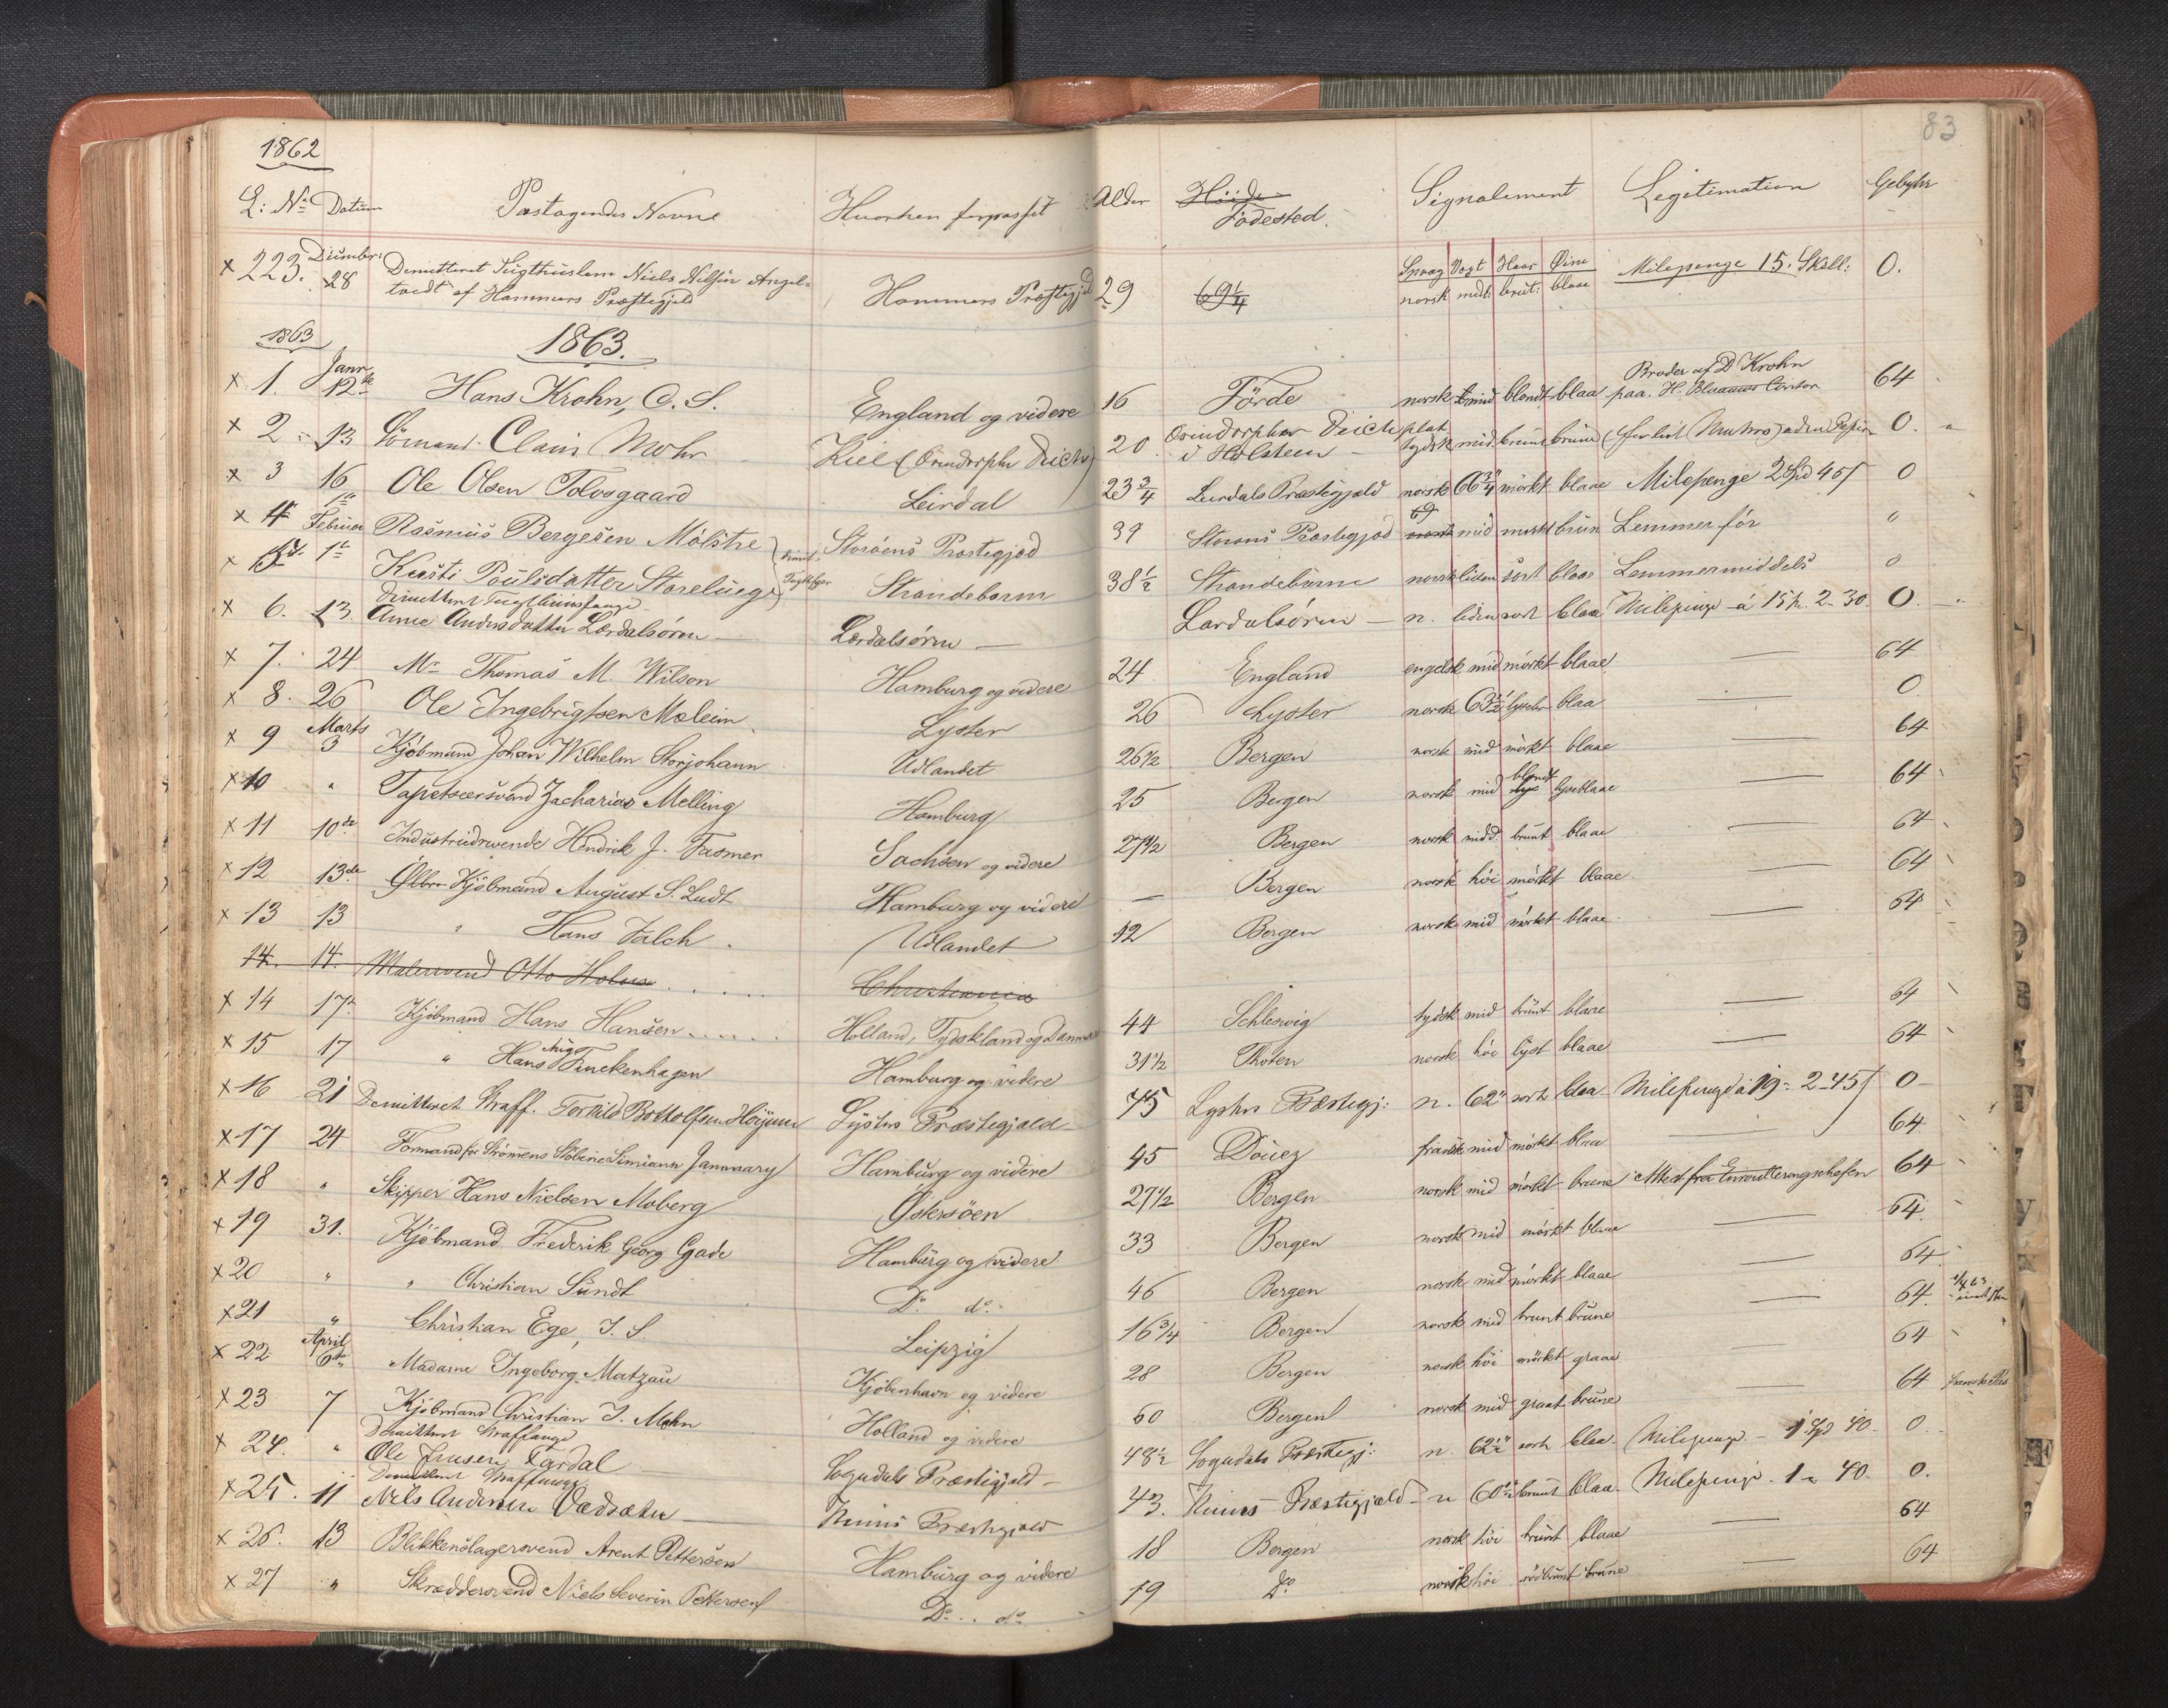 83
1862
L: No Datum Pastagendes Navne Hvorhen forpasset Alder Høide Födested. Signalement Legitimation Gebyhr
Sprog Vext Haar Øine
x 223. December: 28 Demitteret Tugthuslem Niels Nilsen Angel- Hammers Præstegjeld 29 69 1/4 norsk midl: brunt: blaae Milepenge 15. Skill: 0.
tvedt af Hammers Præstegjeld
1863 1863.
x 1. Janr 12te Hans Krohn, C. S. England og videre 16 Förde norsk mid blondt blaa Broder af D Krohn
paa H. Blaauws Contor 64
x 2 13 Claus Mohr Kiel 20 Deich
i Holsteen plat
tydsk mid. brunt brune 0.
x 3 16 Ole Olsen Tolvsgaard Leirdal 23 3/4 Leirdals Præstegjæld norsk 66 3/4" mörkt blaae Milepenge 2 Spd 45 s 0
x 4 Februar Rasmus Bergesen Mölstre Storöens Præstegjæd 39 Storöens Præstegjæd norsk mid mörkt brun Lemmer för "
x 5 1te Kirsti Poulsdatter Strandebarm 38 1/2 Strandebarm norsk liden sort blaae Lemmer middels 0
x 6. 13. Demitteret Tugthuusfange
Anne Andersdatter Lærdalsören Lærdalsören Lærdalsören n. liden sort blaa Milepenge á 15 s. 2 30 0
x 7. 24 Mr Thomas M. Wilson Hamburg og videre 24 England engelsk mid mörkt blaae — 64
x 8. 26 Ole Ingebrigtsen Moleim Lyster 26 Lyster norsk 63 1/2 lysebr blaa — 0
x 9 Marts 3 Kjöbmand Johan Wilhelm Storjohann Udlandet 26 1/2 Bergen norsk mid mörkt blaae — 64
x 10 " Tapetseersvend Zacharias Melling Hamburg 25 Bergen norsk mid blondt lyseblaae — 64
x 11 10de Industridrivende Hendrik J. Fasmer Sachsen og videre 27 1/2 Bergen norsk midd. brunt blaae — 64
x 12 13de Kjöbmand August S. Ludt Hamburg og videre — Bergen norsk höi mörkt blaae — 64
x 13 13 " Hans Falch Udlandet 42 Bergen norsk mid mörkt blaae — 64
14. 14. Malersvend Otto Holm Christiania
x 14 17 Kjöbmand Hans Hansen Holland, Tydskland og Danmark 44 Schlesvig tydsk mid brunt blaae — 64
x 15 17 " Hans Aug Finckenhagen Hamburg og videre 31 1/2 Thoten norsk höi lyst blaae — 64
x 16 21 Demitteret Straff. Torkild Bottolfsen Höyum Lysters Præstegjæld 75 Lysters Præstegj: n. 62" sort blaa Milepenge á 19 = 2-45 s 0
x 17 24 Formand for Strömmens Januaary Hamburg og videre 45 Douez fransk mid mörkt blaa — 64
x 18 " Skipper Hans Nielsen Moberg Östersöen 27 1/2 Bergen norsk mid mörkt brune Attest fra Enroulleringschefen 64
x 19 31. Kjöbmand Frederik Georg Gade Hamburg og videre 33 Bergen norsk mid mörkt blaae — 64.
x 20 " " Christian Sundt Do do 46 Bergen norsk mid mörkt blaae — 64
x 21 " Christian Ege, J. S. Leipzig 16 3/4 Bergen norsk mid brunt brune — 64.
x 22 April 6te Madame Ingeborg Matzau Kjöbenhavn og videre 28 Bergen norsk höi mörkt graae — 64
x 23 7 Kjöbmand Christian J. Mohn Holland og videre 60 Bergen norsk mid graat brune — 64
x 24. " Demitteret Straffange
Ole Jensen Tardal Sogndals Præstegjæld 48 1/2 Sogndals Præstegj: n. 62 1/2" sort blaa Milepenge 1 Spd 40 0
x 25. 11 Demitteret Straffange
Nils Andersen Præstegjæld 43. Præstegjæld n 60 brunt blaa Milepenge. 1 - 40. 0.
x 26. 13 Blikkenslagersvend Arent Pettersen Hamburg og videre 18 Bergen norsk höi brunt blaae — 64
x 27 " Skræddersvend Niels Severin Pettersen Do .. do 19 Do norsk höi rödbrunt brune — 64